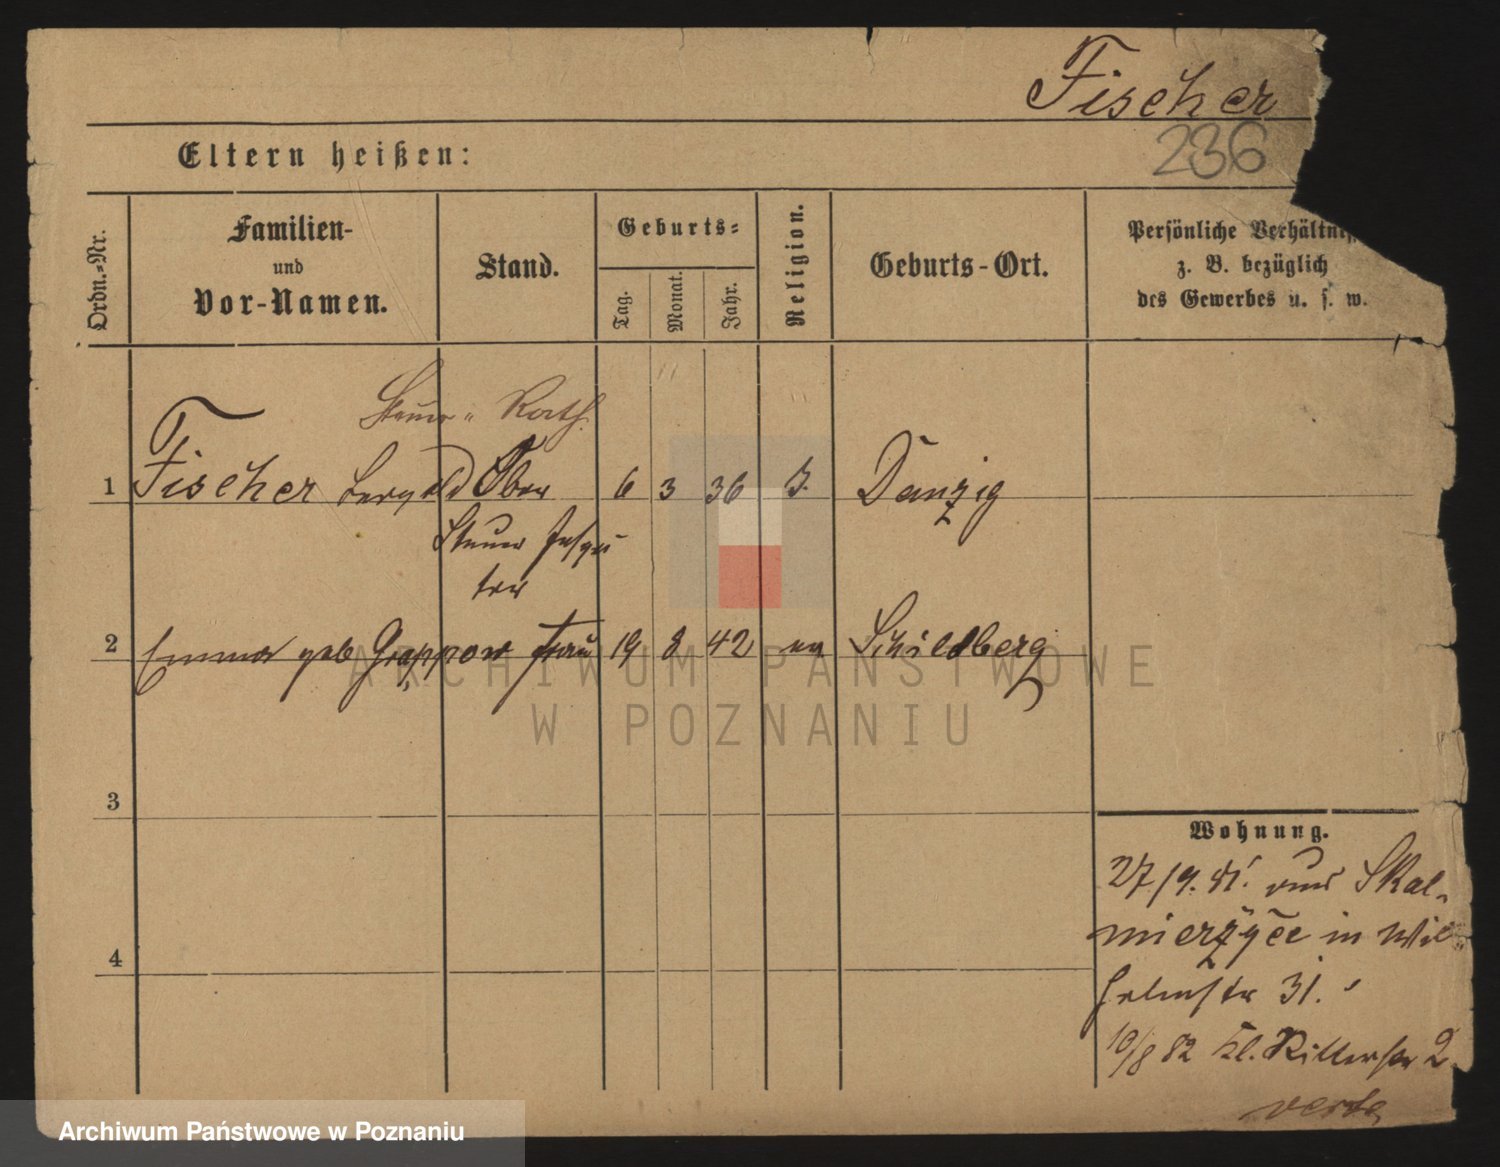 Fischer
236
Eltern heißen:
Ordn.-Nr.
Familien-
und
Vor-Namen.
Stand.
Geburts-
Tag.
Monat.
Jahr.
Religion.
Geburts-Ort.
Persönliche Verhältni
z. B. bezüglich
des Gewerbes u. s. w.
Steuer-Rath.
1 Fischer Ober 6 3 36 Danzig
Steuer Inspec
tor
2 Emma geb Frau 19 8 42 ev Schildberg
3
4
Wohnung.
27/9. 81. aus Skal-
mierzyce in Wil
helmstr 31.
10/8 82 Kl. Ritterstr 2
verte
ARCHIWUM PAŃSTWOWE
W POZNANIU
Archiwum Państwowe w Poznaniu